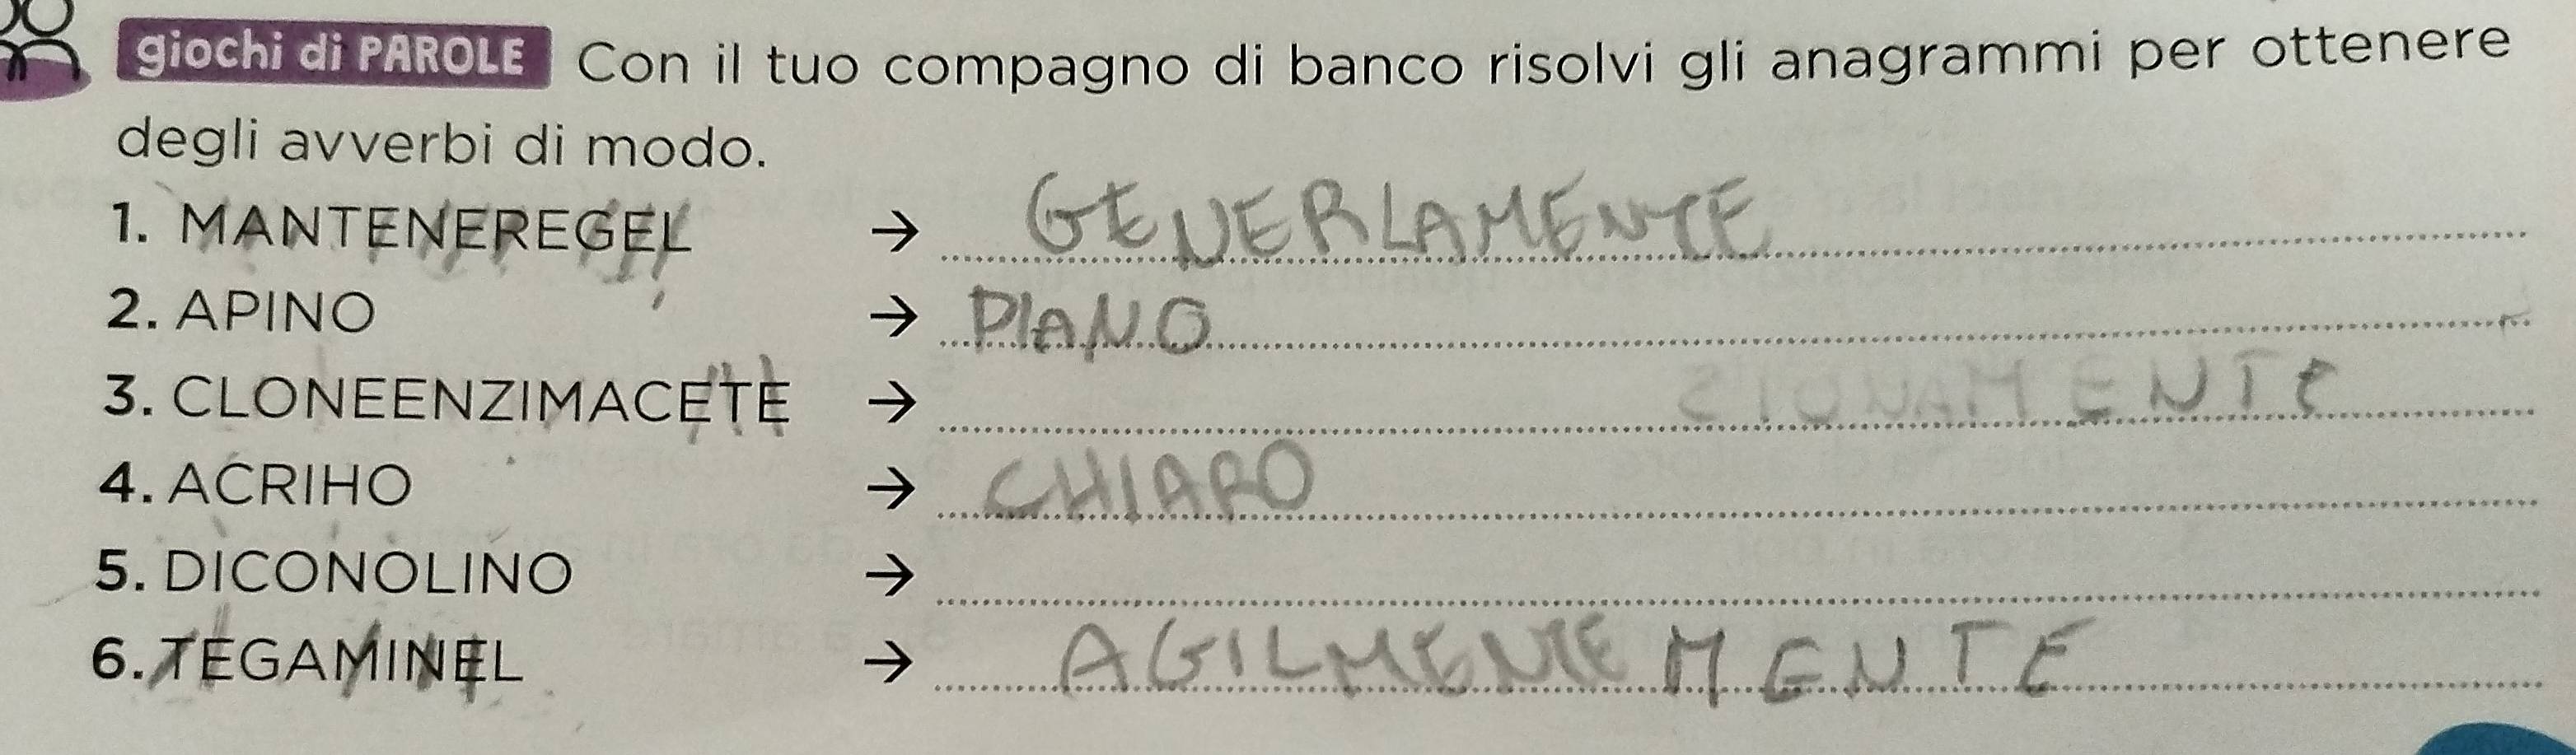 giochi di PAROLE Con il tuo compagno di banco risolvi gli anagrammi per ottenere
degli avverbi di modo.
1. MANTENEREGEL → GENERLAMENTE
2. APINO → PIANO
3. CLONEENZIMACETE → MENTE
4. ACRIHO → CHIARO
5. DICONOLINO →
6. TEGAMINEL → AGILMENTE MENTE